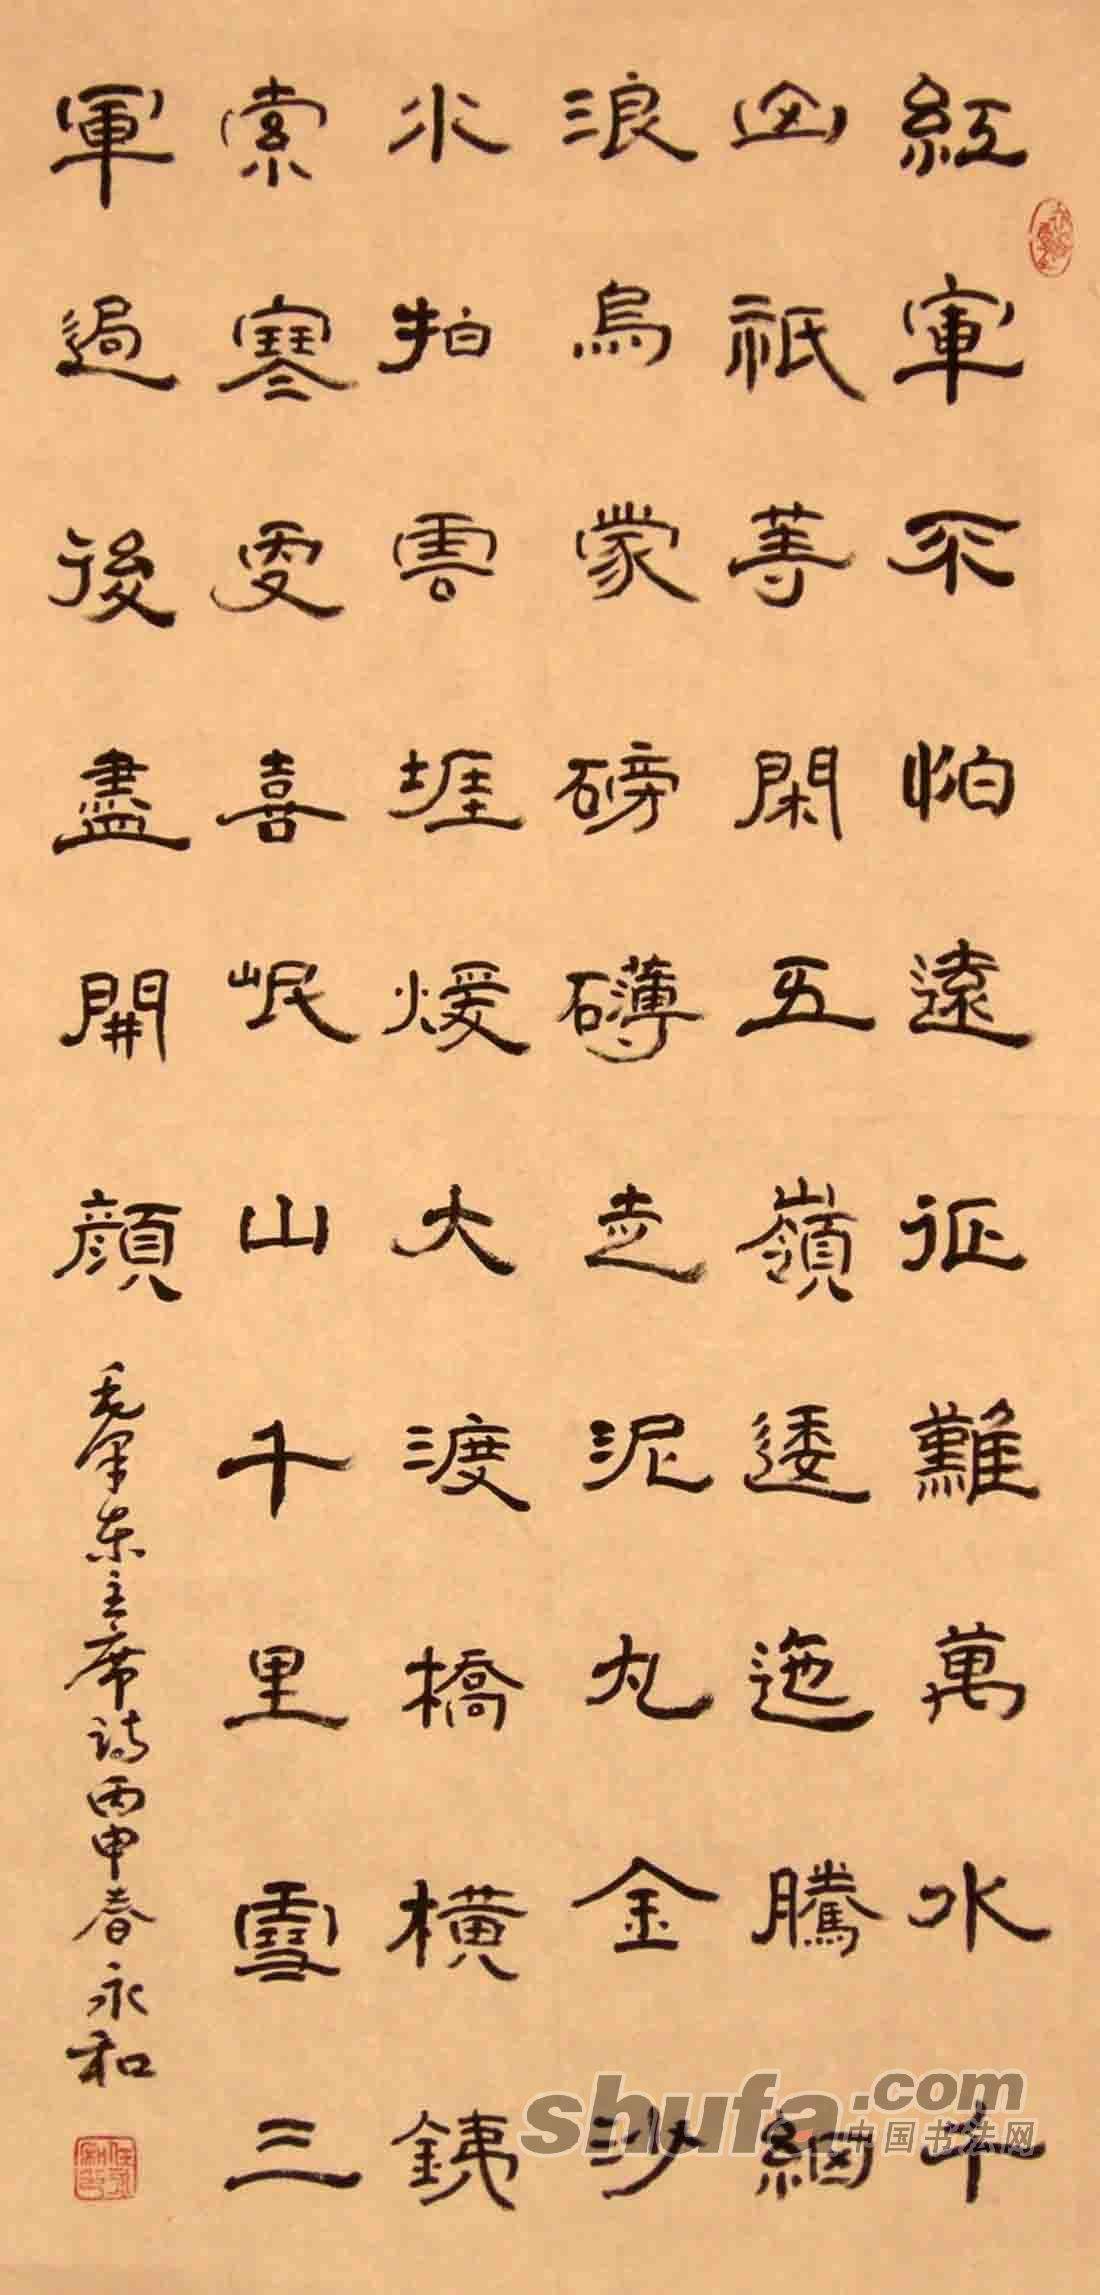 紅軍不怕遠征難萬水千
山祇等閑五嶺逶迤騰細
浪烏蒙磅礴走泥丸金沙
水拍雲堐煖大渡橋橫銕
索寒更喜岷山千里雪三
軍過後盡開顔
毛澤东主席诗丙申春永和
shufa.com
中国书法网